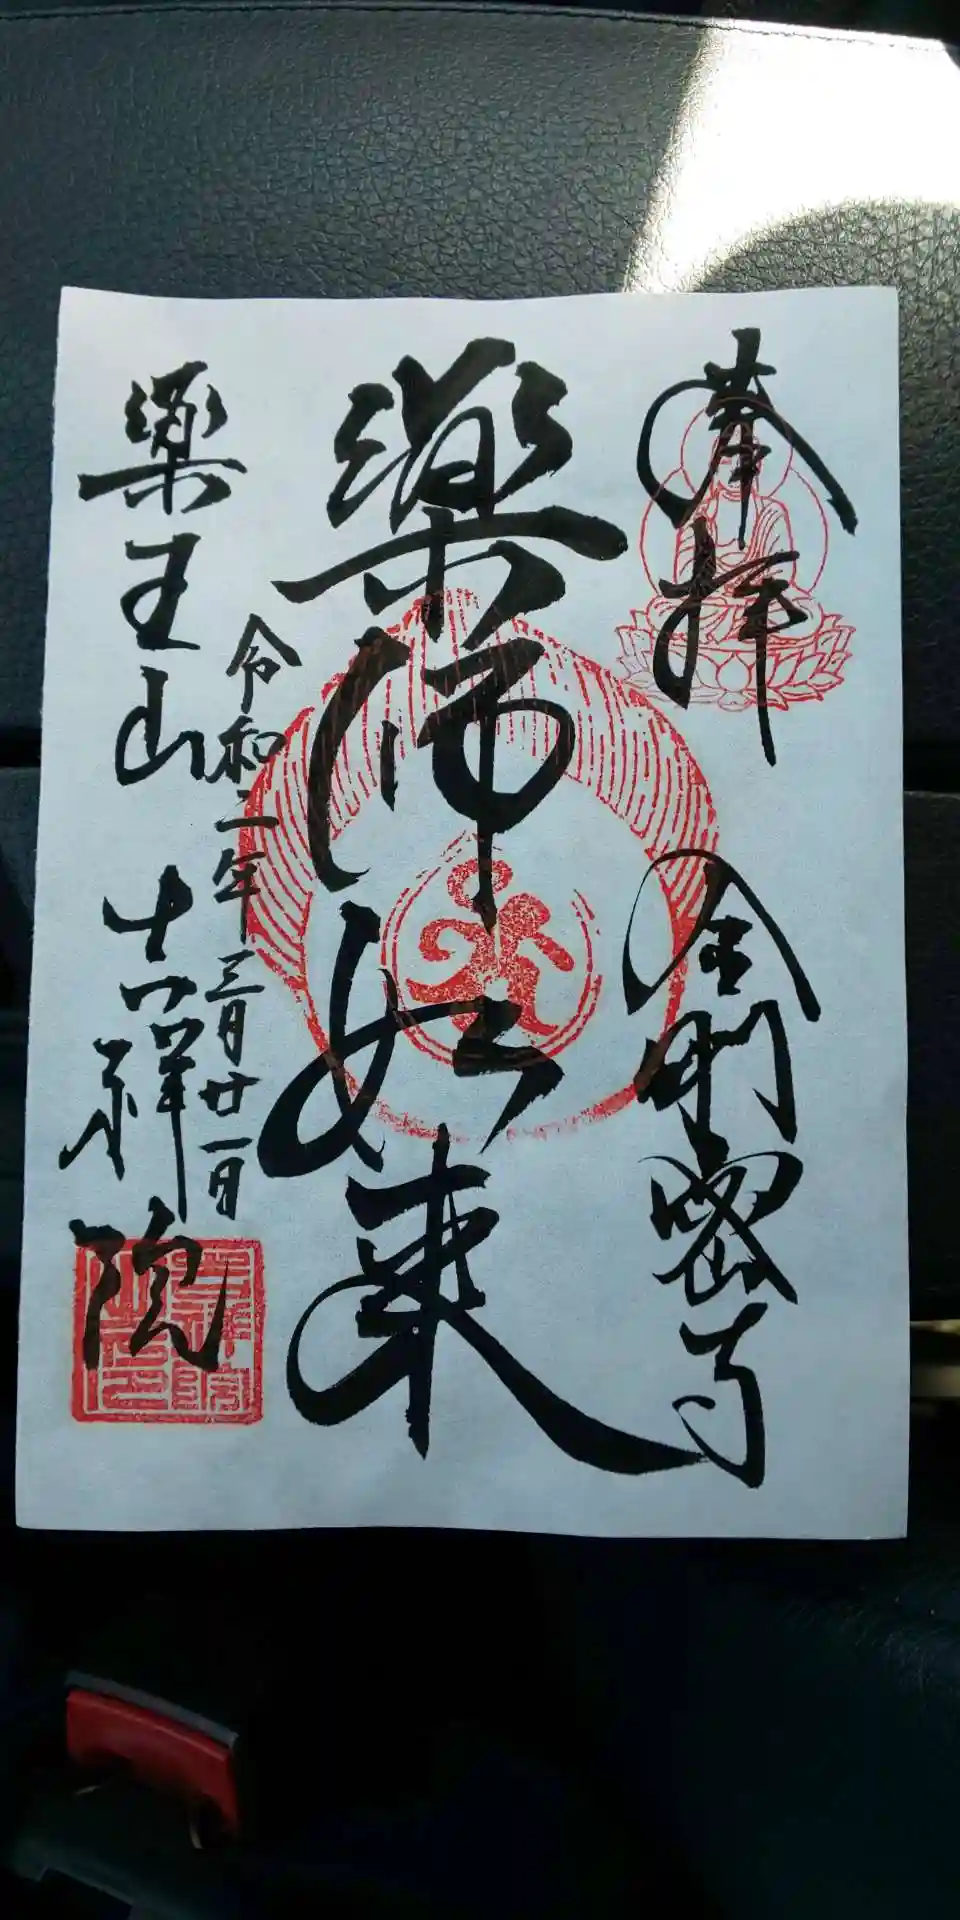 奉拝 金剛密寺
薬師如来
令和二年三月廿一日
薬王山 吉祥院